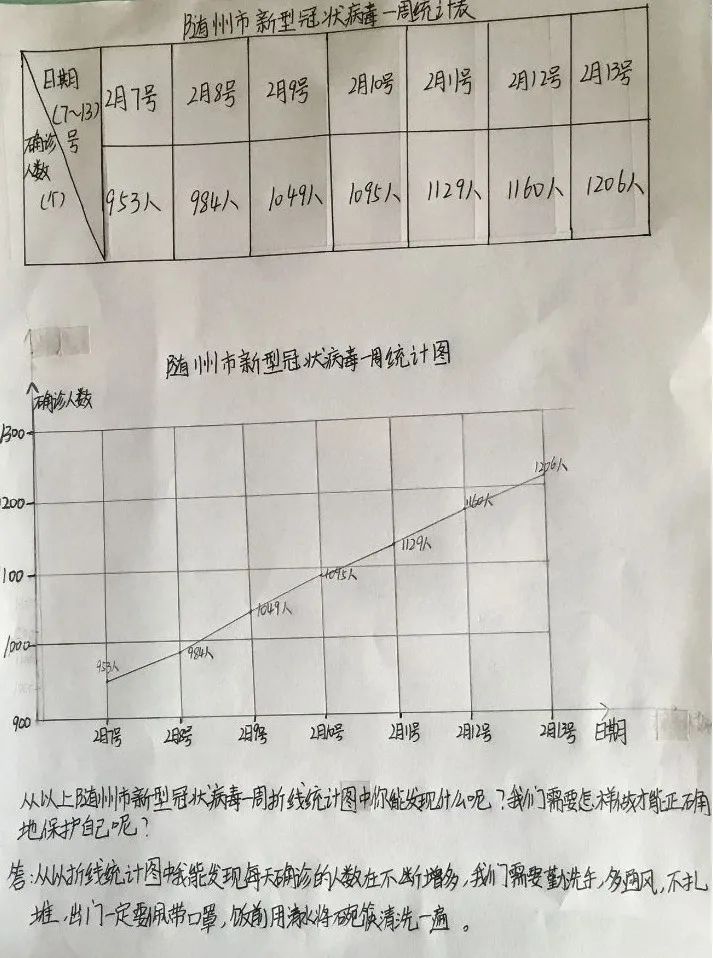 随州市新型冠状病毒一周统计表
日期 2月7号 2月8号 2月9号 2月10号 2月11号 2月12号 2月13号
(7~13)
号
确诊
人数
(个)
953人 984人 1049人 1095人 1129人 1160人 1206人
随州市新型冠状病毒一周统计图
确诊人数
1300
1206人
1200
1160人
1129人
1100
1095人
1049人
1000
984人
953人
900
2月7号 2月8号 2月9号 2月10号 2月11号 2月12号 2月13号 日期
从以上随州市新型冠状病毒一周折线统计图中你能发现什么呢?我们需要怎样做才能正确
地保护自己呢?
答:从以折线统计图中我能发现每天确诊的人数在不断增多,我们需要勤洗手,多通风,不扎
堆,出门一定要佩带口罩,饭前用沸水将碗筷清洗一遍。